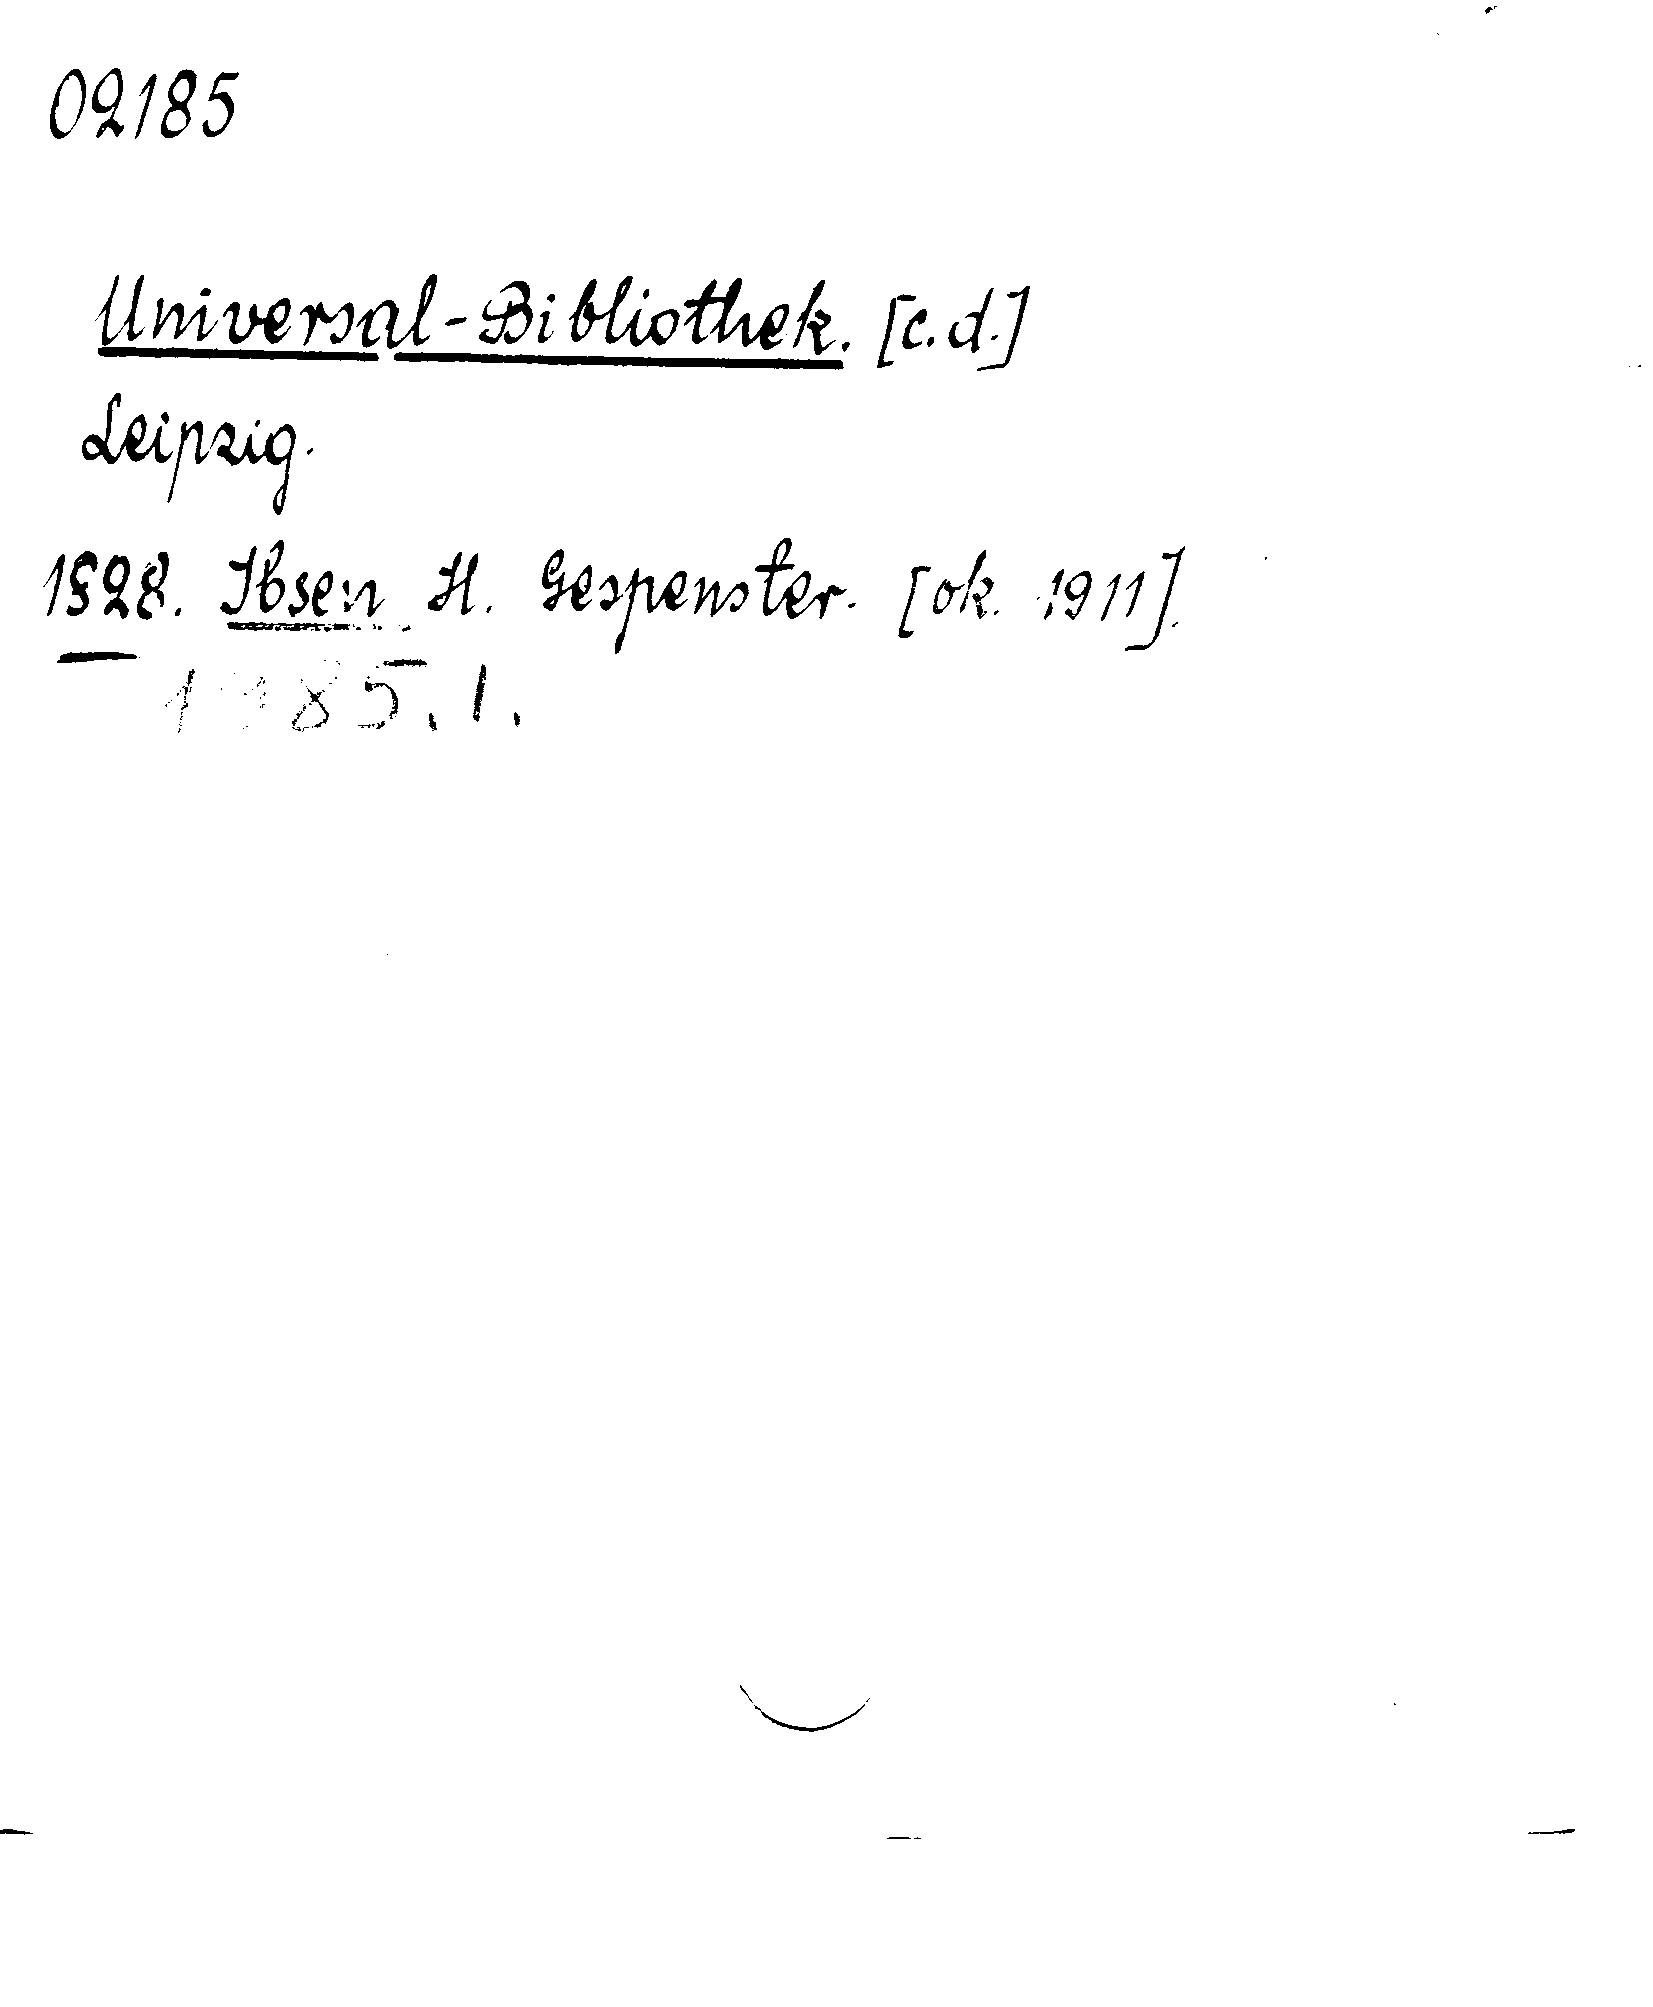 02185
Universal-Bibliothek. [c.d.]
Leipzig.
1828. Ibsen H. Gespenster. [ok. 1911].
1985.1.